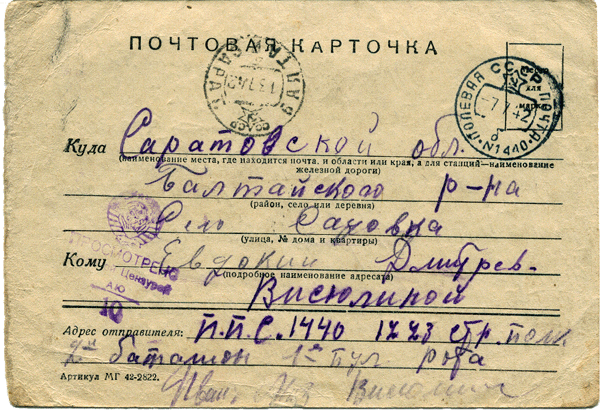 ПОЧТОВАЯ КАРТОЧКА
БАЛТАЙ САРАТ.
СССР
13.7.42
ПОЛЕВАЯ ПОЧТА
СССР
№1440
7.7.42
для
Куда Саратовской обл.
(наименование места, где находится почта, и области или края, а для станций—наименование
железной дороги)
Балтайского р-на
(район, село или деревня)
Село Садовка
(улица, № дома и квартиры)
ПРОСМОТРЕНО
Цензурой
10
Кому Евдокии Дмитрев.
(подробное наименование адресата)
Висюлиной
Адрес отправителя: П.П.С. 1440 1223 стр. полк
2й батальон 1я пул рота
Артикул МГ 42-2822.
Иван. Висюлин